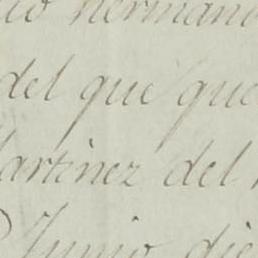 hermano
del que que
Martinez del
Junio die